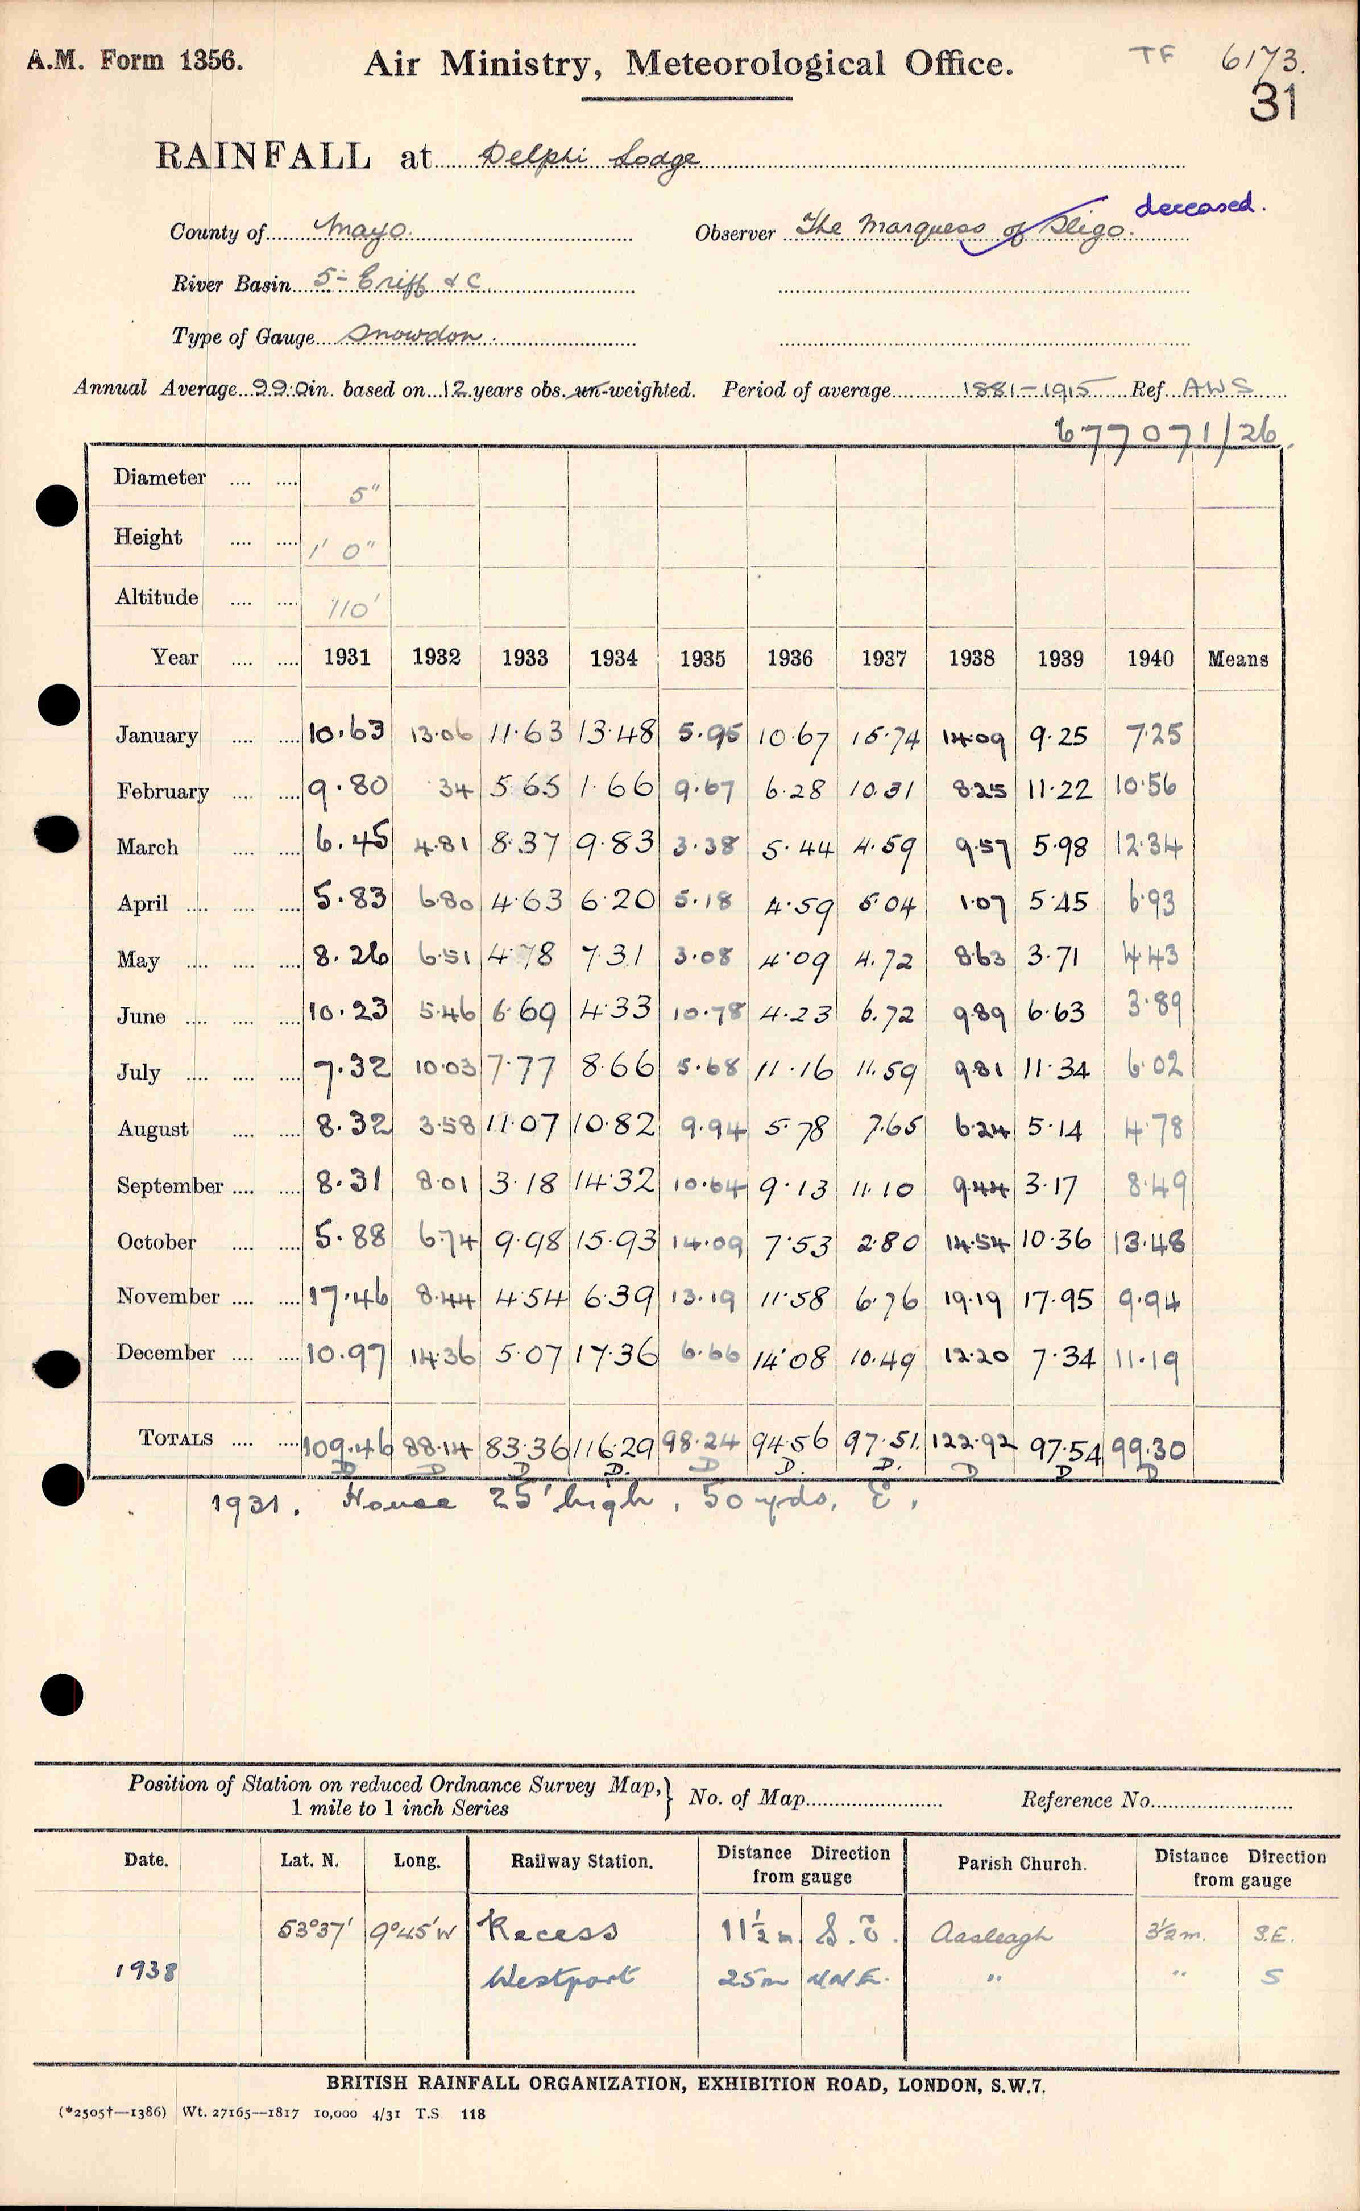 A.M. Form 1356.
Air Ministry, Meteorological Office.
TF 6173.
31
RAINFALL at Delphi Lodge
deceased.
County of Mayo. Observer The Marquess of Sligo.
River Basin 5- Eriff & C
Type of Gauge Snowdon.
Annual Average 99.0 in. based on 12 years obs. un-weighted. Period of average 1881-1915 Ref. AWS
677071/26.
Diameter .... .... 5"
Height .... .... 1' 0"
Altitude .... .... 110'
Year .... .... 1931 1932 1933 1934 1935 1936 1937 1938 1939 1940 Means
January .... .... 10.63 13.06 11.63 13.48 5.95 10.67 15.74 14.09 9.25 7.25
February .... .... 9.80 34 5.65 1.66 9.67 6.28 10.31 8.25 11.22 10.56
March .... .... 6.45 4.81 8.37 9.83 3.38 5.44 4.59 9.57 5.98 12.34
April .... .... .... 5.83 6.80 4.63 6.20 5.18 4.59 5.04 1.07 5.45 6.93
May .... .... .... 8.26 6.51 4.78 7.31 3.08 4.09 4.72 8.63 3.71 4.43
June .... .... .... 10.23 5.46 6.69 4.33 10.78 4.23 6.72 9.89 6.63 3.89
July .... .... .... 7.32 10.03 7.77 8.66 5.68 11.16 11.59 9.81 11.34 6.02
August .... .... 8.32 3.58 11.07 10.82 9.94 5.78 7.65 6.24 5.14 4.78
September .... .... 8.31 8.01 3.18 14.32 10.64 9.13 11.10 9.44 3.17 8.49
October .... .... 5.88 6.74 9.98 15.93 14.09 7.53 2.80 14.54 10.36 13.48
November .... .... 17.46 8.44 4.54 6.39 13.19 11.58 6.76 19.19 17.95 9.94
December .... .... 10.97 14.36 5.07 17.36 6.66 14.08 10.49 12.20 7.34 11.19
TOTALS .... .... 109.46 88.14 83.36 116.29 98.24 94.56 97.51. 122.92 97.54 99.30
D D D D. D D. D. D D D
1931. House 25' high, 50 yds, E.
Position of Station on reduced Ordnance Survey Map,} No. of Map Reference No.
1 mile to 1 inch Series
Date. Lat. N. Long. Railway Station. Distance Direction from gauge Parish Church. Distance Direction from gauge
53°37' 9°45'W Recess 11½ m. S.E. Aasleagh 3½ m. S.E.
1938 Westport 25m NNE. " " S
BRITISH RAINFALL ORGANIZATION, EXHIBITION ROAD, LONDON, S.W.7.
(*2505†—1386) Wt. 27165—1817 10,000 4/31 T.S 118